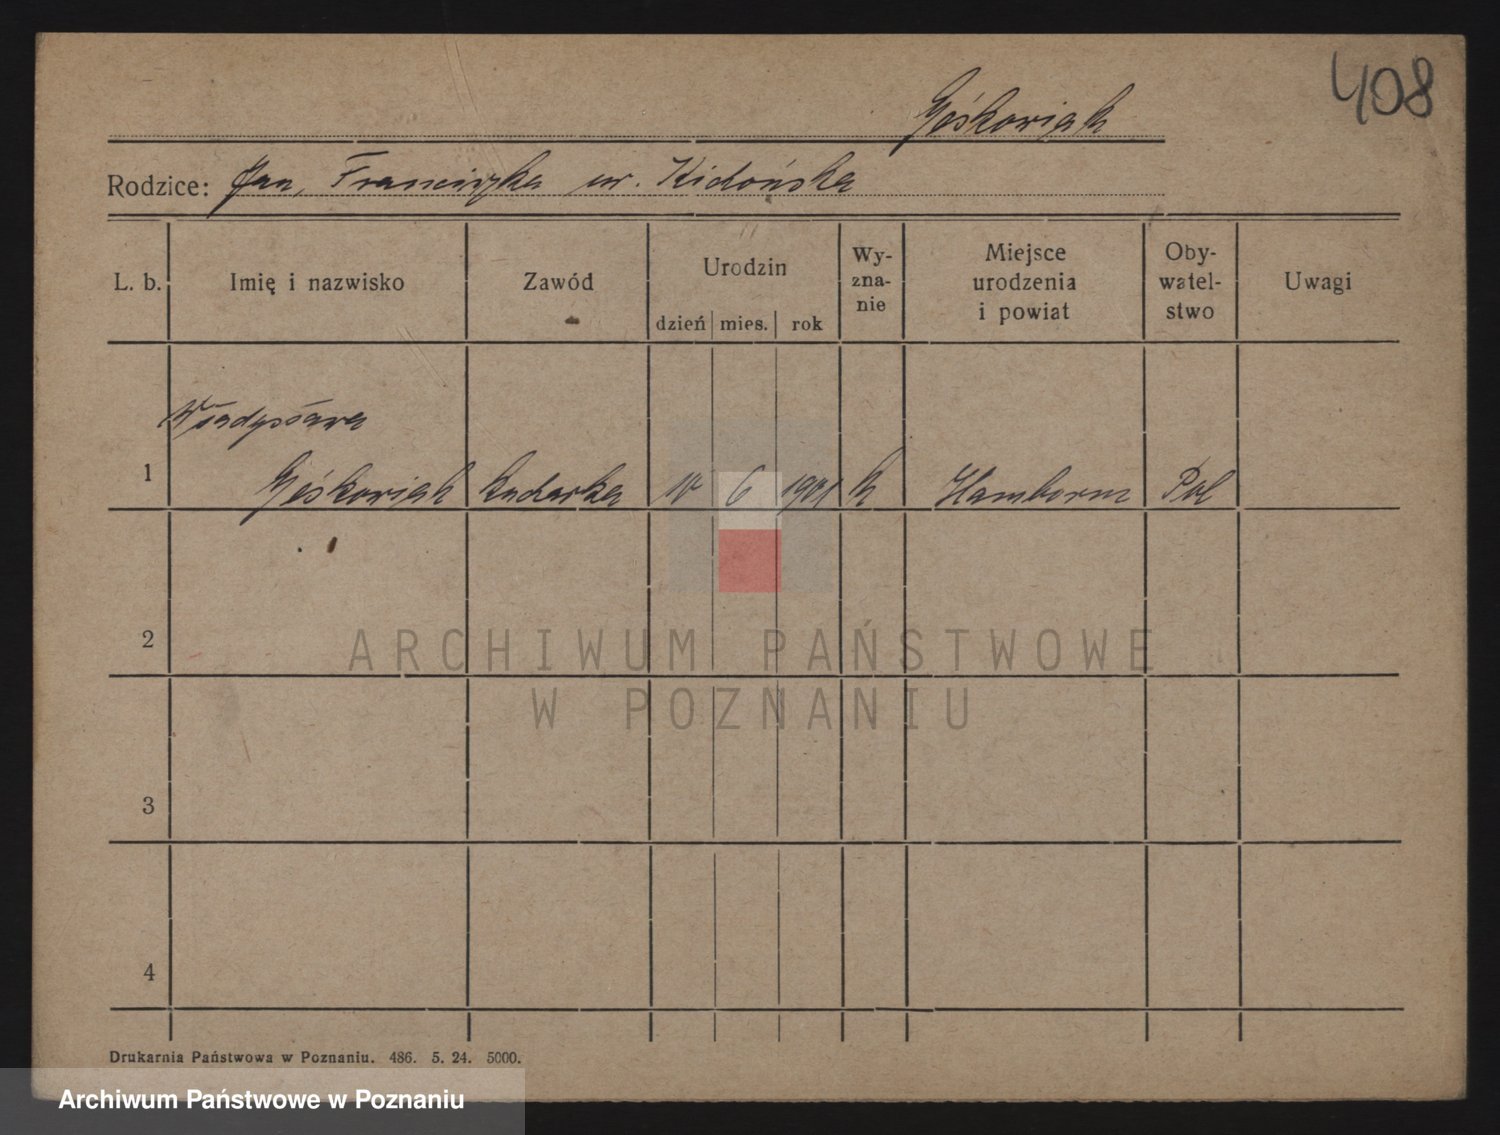 408
Gośkowiak
Rodzice: Jan, Franciszka ur. Kidońska
L. b. Imię i nazwisko Zawód Urodzin dzień mies. rok Wy-zna-nie Miejsce urodzenia i powiat Oby-watel-stwo Uwagi
Władysława
1 Gośkowiak 10 6 1901 k Hamborn Pol
2
ARCHIWUM PAŃSTWOWE
W POZNANIU
3
4
Drukarnia Państwowa w Poznaniu. 486. 5. 24. 5000.
Archiwum Państwowe w Poznaniu